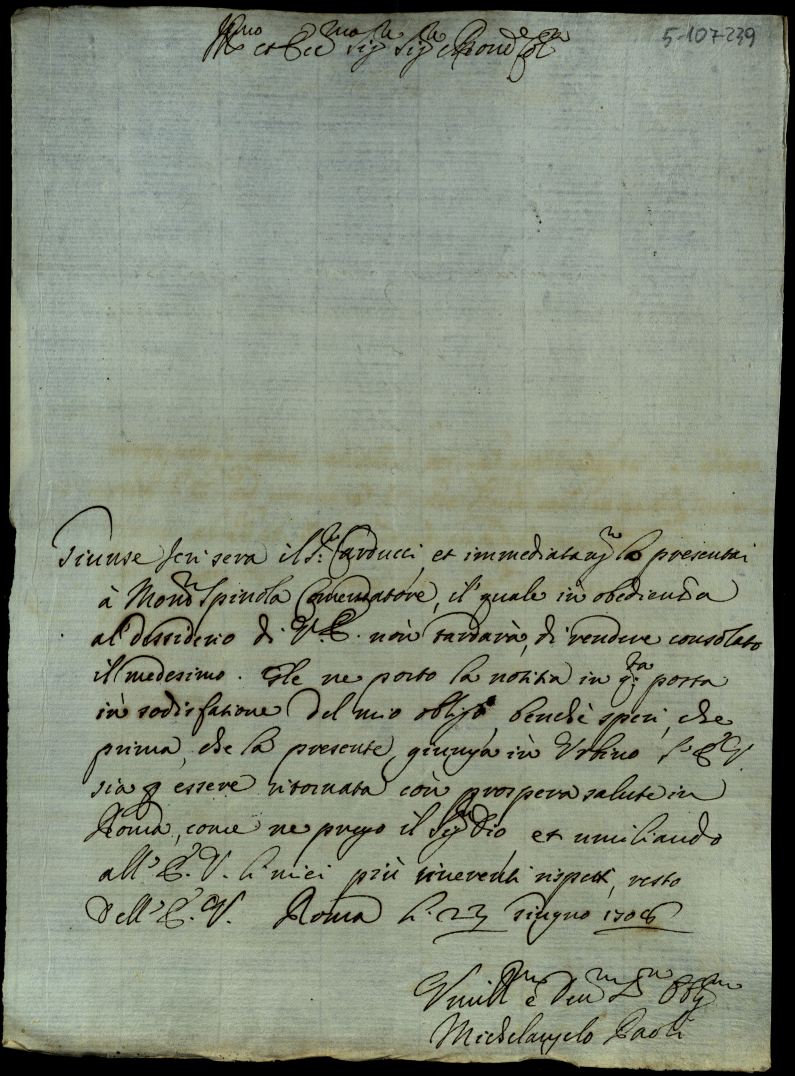 5-107-239
Ill.mo et Ecc.mo Sig.r Sig.r e Pron.e Col.mo
Giunse hieri sera il S.r Carducci, et immediatam.te lo presentai
à Mons.r Spinola Comendatore, il quale in obedienza
al dessiderio di V.E. non tardarà, di rendere consolato
il medesimo. Gle ne porto la notitia in q.ta posta
in sodisfatione del mio obligo benche speri, che
prima, che la presente giunga in Urbino l'E.V.
sia p essere ritornata con prospera salute in
Roma, come ne prego il Sig.r Dio, et umiliando
all'E.V. li miei più riverenti rispetti, resto
Dell'E.V. Roma li 23 Giugno 1706
Umill.mo e Dev.mo S.re Obl.mo
Michelangelo Paoli